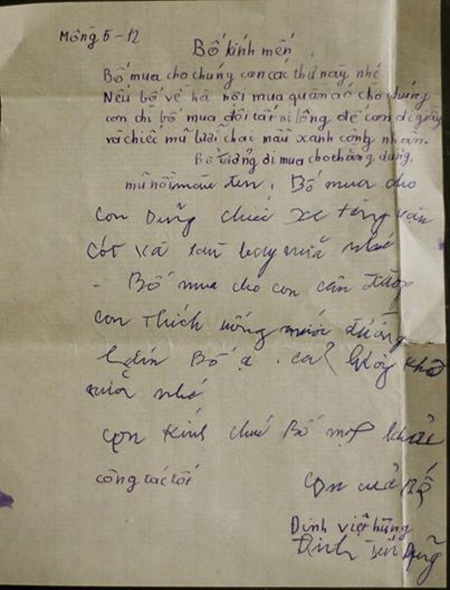 Mồng 5-12
Bố kính mến
Bố mua cho chúng con các thứ này nhé
Nếu bố về hà nội mua quần áo cho chúng
con thì bố mua đôi tất ni lông để con đi giầy
và chiếc mũ lưỡi chai mầu xanh công nhân.
Bố tưởng đi mua cho thằng dũng,
mũ nồi màu đen. Bố mua cho
con Dũng chiếc xe tăng vặn
cót và tàu bay nữa nhé
- Bố mua cho con cân đường
con thích uống nước đường
lắm Bố ạ. cả khô
nữa nhé
con kính chúc Bố mạnh khỏe
công tác tốt
con của Bố
Đinh việt hùng
Đinh Dũng